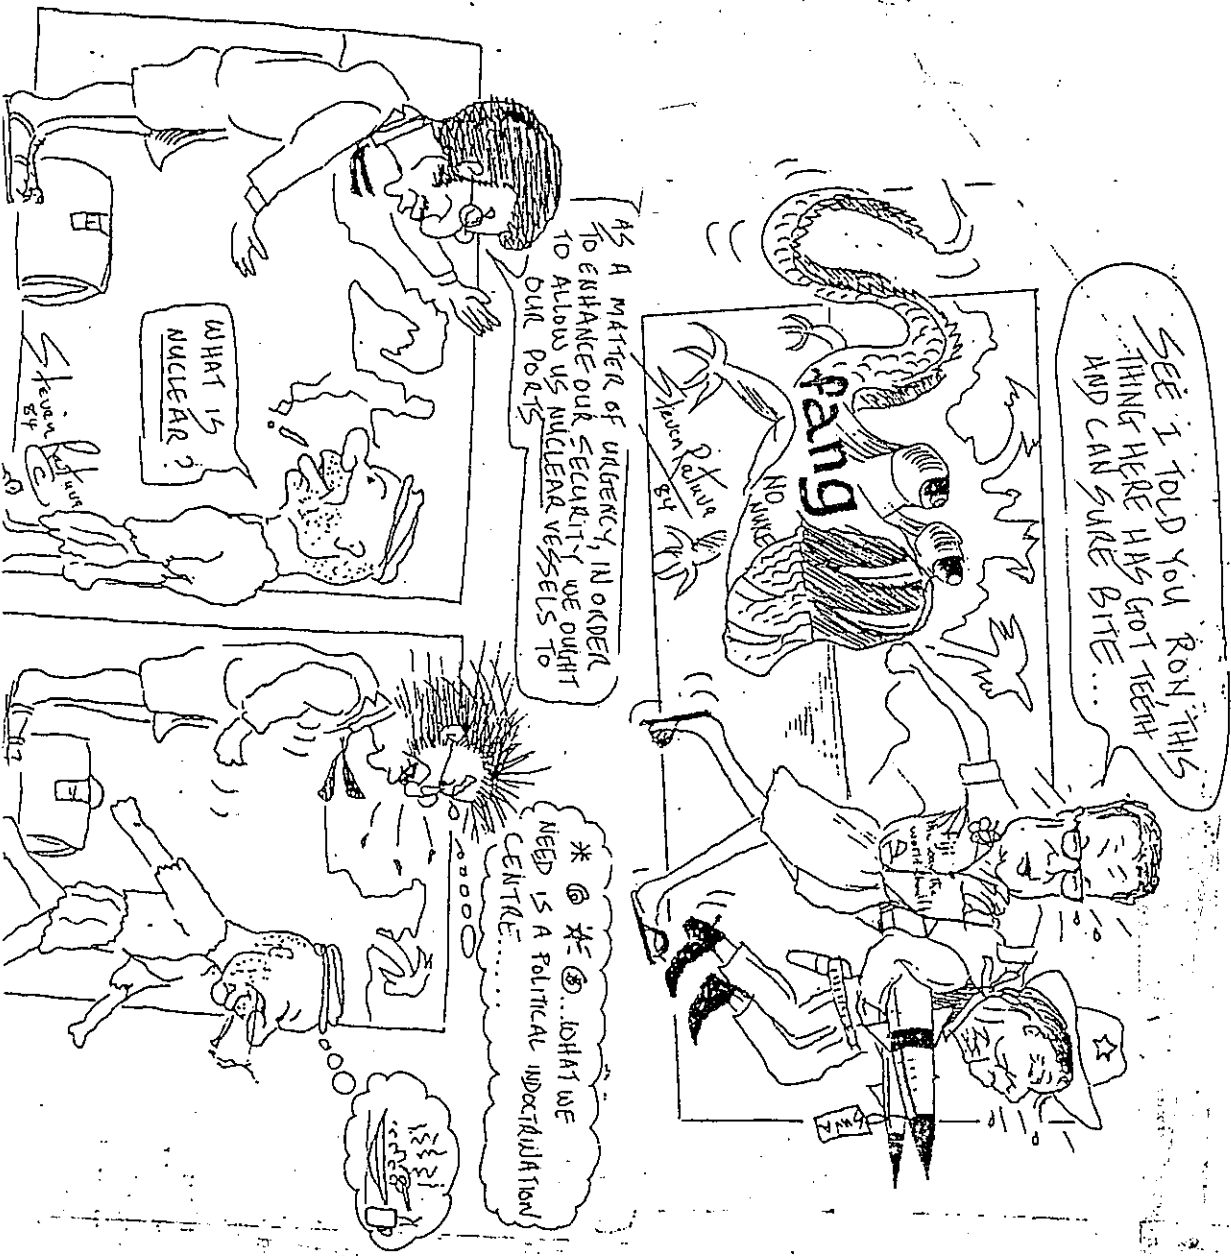 SEE I TOLD YOU RON, THIS
THING HERE HAS GOT TEETH
AND CAN SURE BITE...
Fiji
the way the
world should
fang
NO
NUKE
Steven Ratuva
84
SUVA
AS A MATTER OF URGENCY, IN ORDER
TO ENHANCE OUR SECURITY, WE OUGHT
TO ALLOW US NUCLEAR VESSELS TO
OUR PORTS
WHAT IS
NUCLEAR?
Steven Ratuva
84
...WHAT WE
NEED IS A POLITICAL INDOCTRINATION
CENTRE......